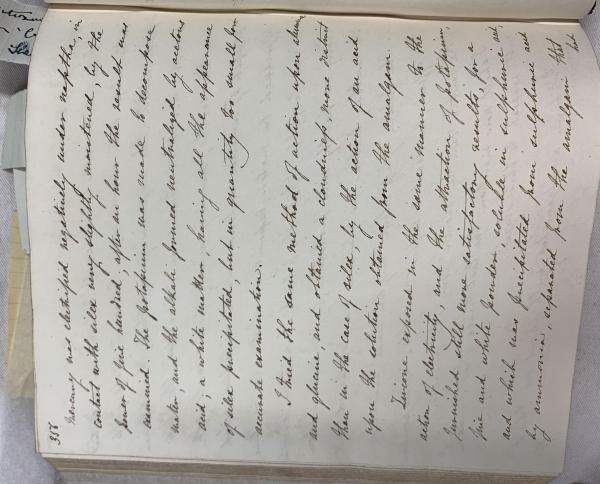 358
Mercury was electrified negatively under naptha, in
contact with silex very slightly moistened, by the
power of five hundred; after an hour the result was
examined. The potassium was made to decompose
water, and the alkali formed neutralized by acetous
acid; a white matter, having all the appearance
of silex precipitated, but in quantity too small for
accurate examination.
I tried the same method of action upon alumine
and glucine, and obtained a cloudiness, more distinct
than in the case of silex, by the action of an acid
upon the solution obtained from the amalgam.
Zircone exposed in the same manner to the
action of electricity, and the attraction of potassium,
furnished still more satisfactory results, for a
fine and white powder soluble in sulphuric acid,
and which was precipitated from sulphuric acid
by ammonia, separated from the amalgam that